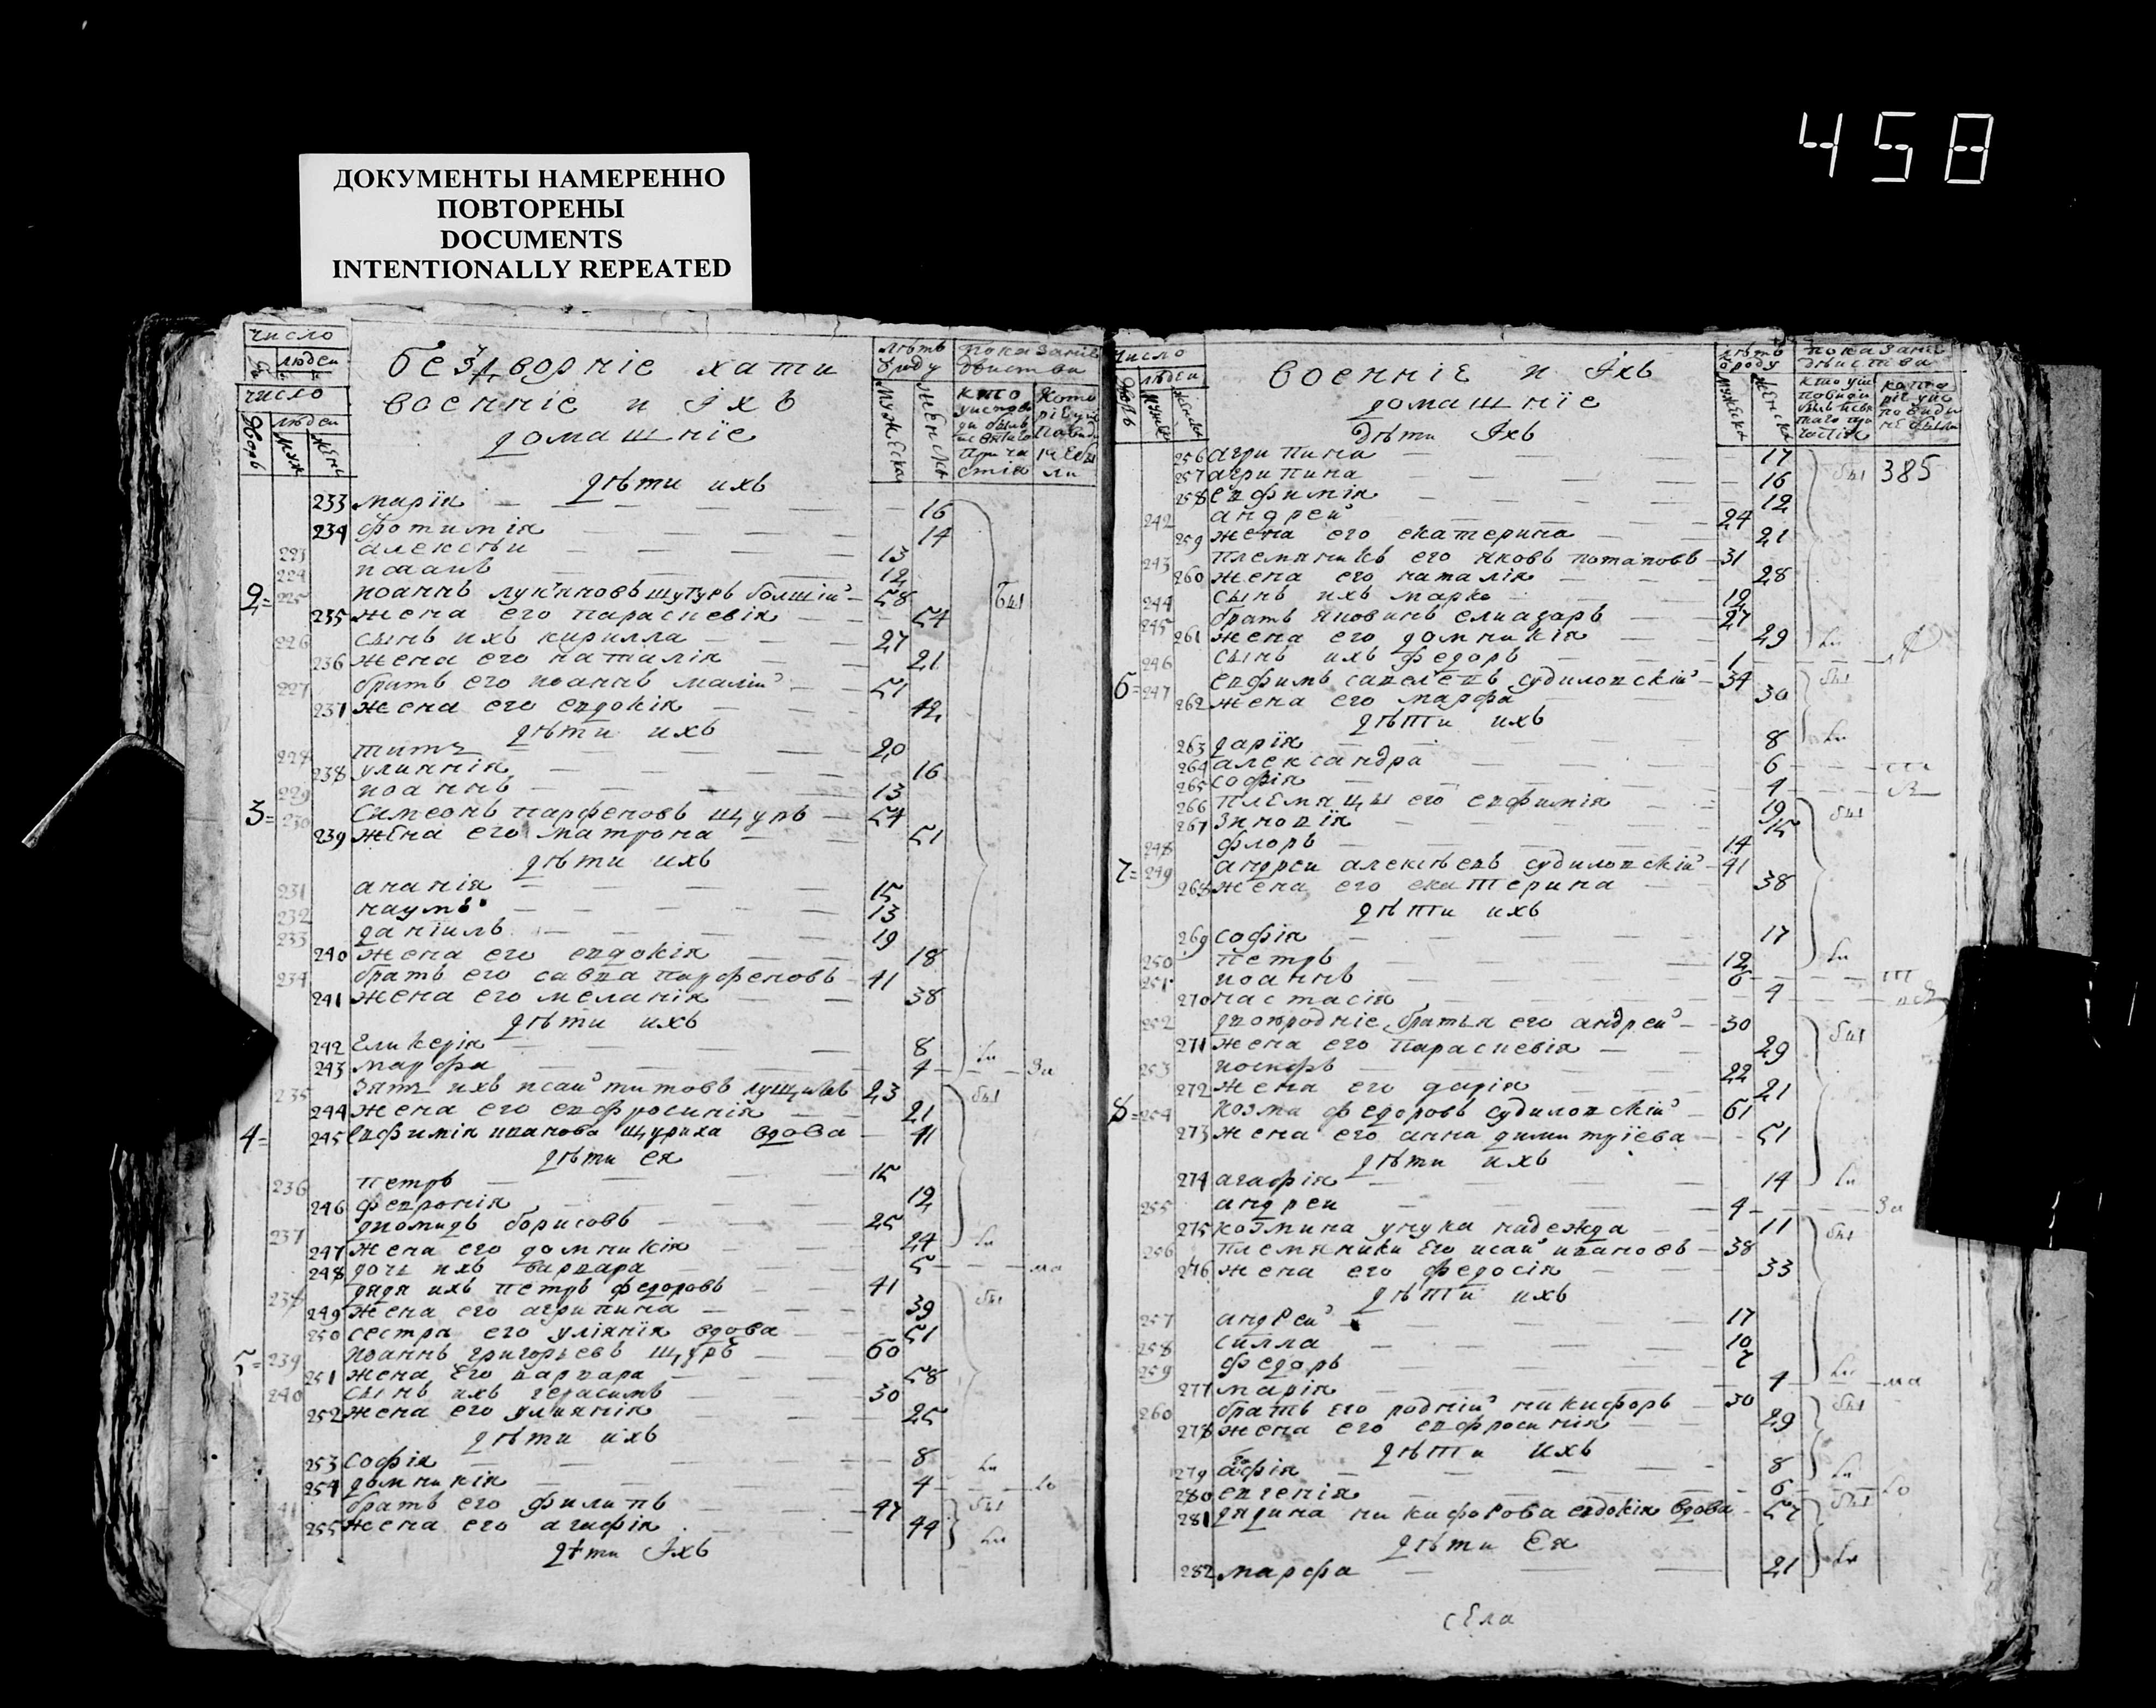 458
ДОКУМЕНТЫ НАМЕРЕННО
ПОВТОРЕНЫ
DOCUMENTS
INTENTIONALLY REPEATED
число
люден
безд ворніе хати
лѣтъ
показаніе
число
военніе и Іхъ
люден
домашніе
дѣти ихъ
233 марія 16
234 фотимія 14
223 алексѣи 13
224 12
2 = 225 иоаннъ лукяновъ болшій 58
235 жена его парасневія 54
226 сынъ ихъ кирилла 27
236 жена его наталія 21
227 братъ его иоаннъ малій 51
237 жена его евдокія 42
дѣти ихъ
228 титъ 20
238 улиянія 16
229 иоаннъ 13
3 = 230 Симеонъ парфеновъ щуръ 54
239 жена его матрона 51
дѣти ихъ
231 ананія 15
232 наумъ 13
233 даніилъ 19
240 жена его евдокія 18
234 братъ его савва парфеновъ 41
241 жена его меланія 38
дѣти ихъ
242 гликерія 8
243 марфа 4
235 зять ихъ исаи титовъ 23
244 жена его евфросинія 21
4 = 245 Евфимія иванова щуриха вдова 41
дѣти ея
236 петръ 15
246 февронія 12
237 диомидъ борисовъ 25
247 жена его домникія 24
248 дочь ихъ варвара 5
238 дядя ихъ петръ федоровъ 41
249 жена его агрипина 39
250 сестра его уліянія вдова 51
5 = 239 иоаннъ григорьевъ щуръ 60
251 жена его варвара 58
240 сынъ ихъ герасимъ 30
252 жена его улиянія 25
дѣти ихъ
253 софія 8
254 домникія 4
241 братъ его филипъ 47
255 жена его агафія 44
дѣти Іхъ
число
люден
военніе и Іхъ
лѣтъ
показаніе
домашніе
дѣти Іхъ
256 агрипина 17
385
257 агрипина 16
258 евфимія 12
242 андреи 24
259 жена его екатерина 21
243 племяникъ его яковъ потаповъ 31
260 жена его наталія 28
244 сынъ ихъ марко 12
245 братъ яковинъ елиазаръ 27
261 жена его домникія 29
246 сынъ ихъ федоръ 1
6 = 247 евфимъ савелевъ судиловскій 34
262 жена его марфа 30
дѣти ихъ
263 дарія 8
264 александра 6
265 софія 4
266 племяцы его евфимія 19
267 зиновія 15
248 флоръ 14
7 = 249 андреи алексѣевъ судиловскій 41
268 жена его екатерина 38
дѣти ихъ
269 софія 17
250 петръ 12
251 иоаннъ 6
270 настасія 4
252 двоюродніе братья его андреи 30
271 жена его парасневія 29
253 иосифъ 22
272 жена его дарія 21
8 = 254 козма федоровъ судиловскій 61
273 жена его анна димитріева 51
дѣти ихъ
274 агафія 14
255 андреи 4
275 козмина унука надежда 11
256 племяники его исаи ивановъ 38
276 жена его федосія 33
дѣти ихъ
257 андреи 17
258 силла 10
259 федоръ 7
277 марія 4
260 братъ его родній никифоръ 30
278 жена его евфросинія 29
дѣти ихъ
279 8
280 евгенія 6
281 дядина никифорова евдокія вдова 57
дѣти Ея
282 марфа 21
сЕла